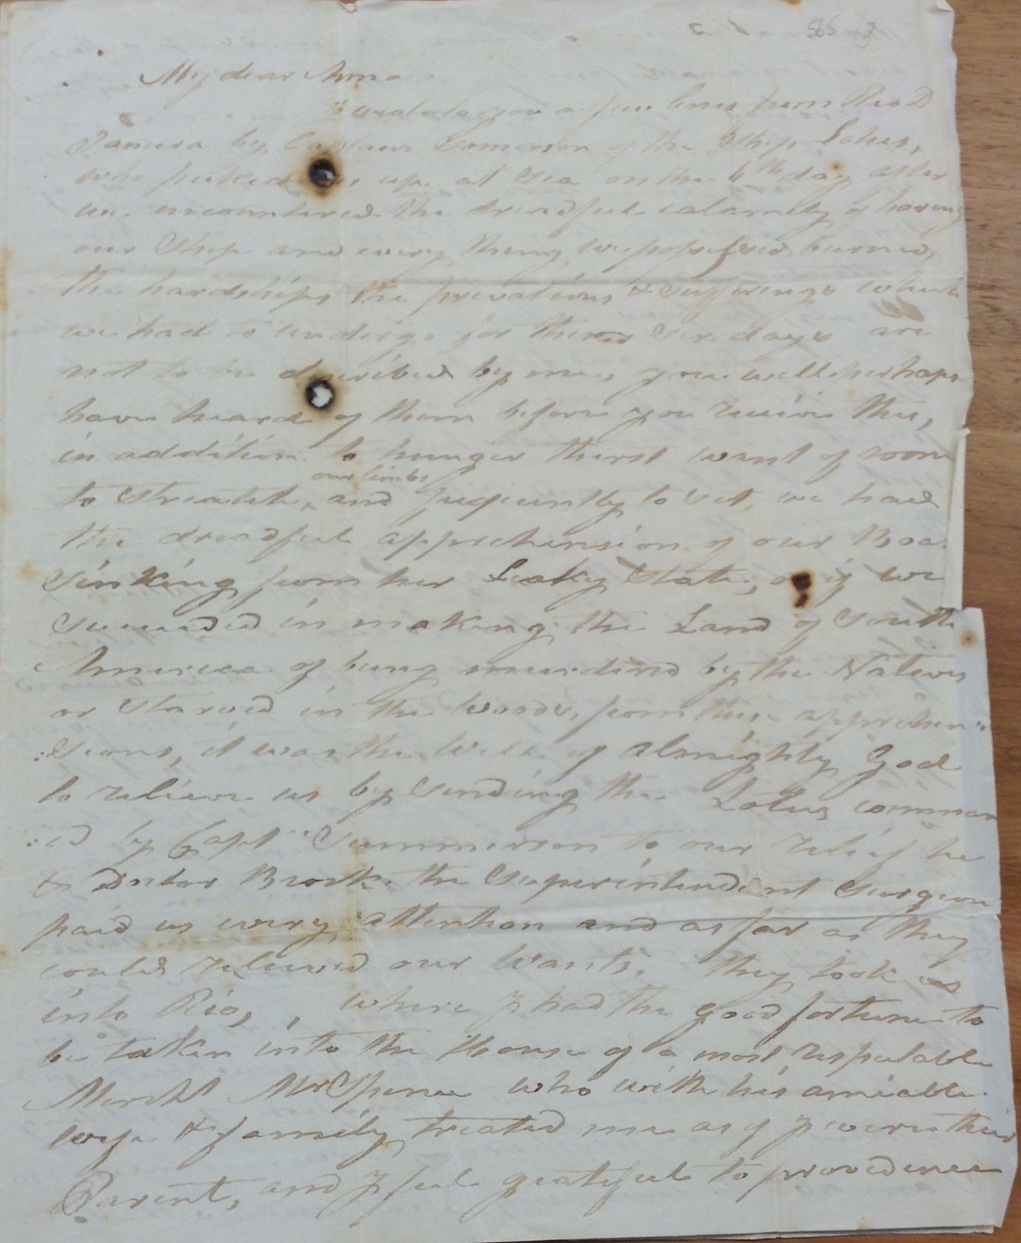 565 3
My dear Anna
I wrote to you a few lines from Rio D
Janeiro by Captain Summerson of the Ship Lotus,
who picked us up at Sea on the 6th day after
we encountered the dreadful calamity of having
our Ship and every thing we possessed burned,
the hardships the privations & sufferings which
we had to undergo for these six days are
not to be described by me, you will perhaps
have heard of them before you receive this,
in addition to hunger thirst want of room
to Streatch our limbs, and frequently to Set, we had
the dreadful apprehension of our Boa
Sinking from her Leaky State, or if we
Succeeded in making the Land of South
America of being murdered by the Natives
or Starved in the woods, from these apprehen
:sions, it was the Will of Almighty God
to relieve us by Sending the Lotus comman
:ed by Capt Summerson to our relief he
& Doctor Brock the Superintendent Surgeon
paid us every attention and as far as they
could relieved our Wants. they took us
into Rio, where I had the good fortune to
be taken into the House of a most respectable
Mercht Mr Spence who with his amiable
wife & family treated me as if I were their
Parent, and I feel grateful to providence